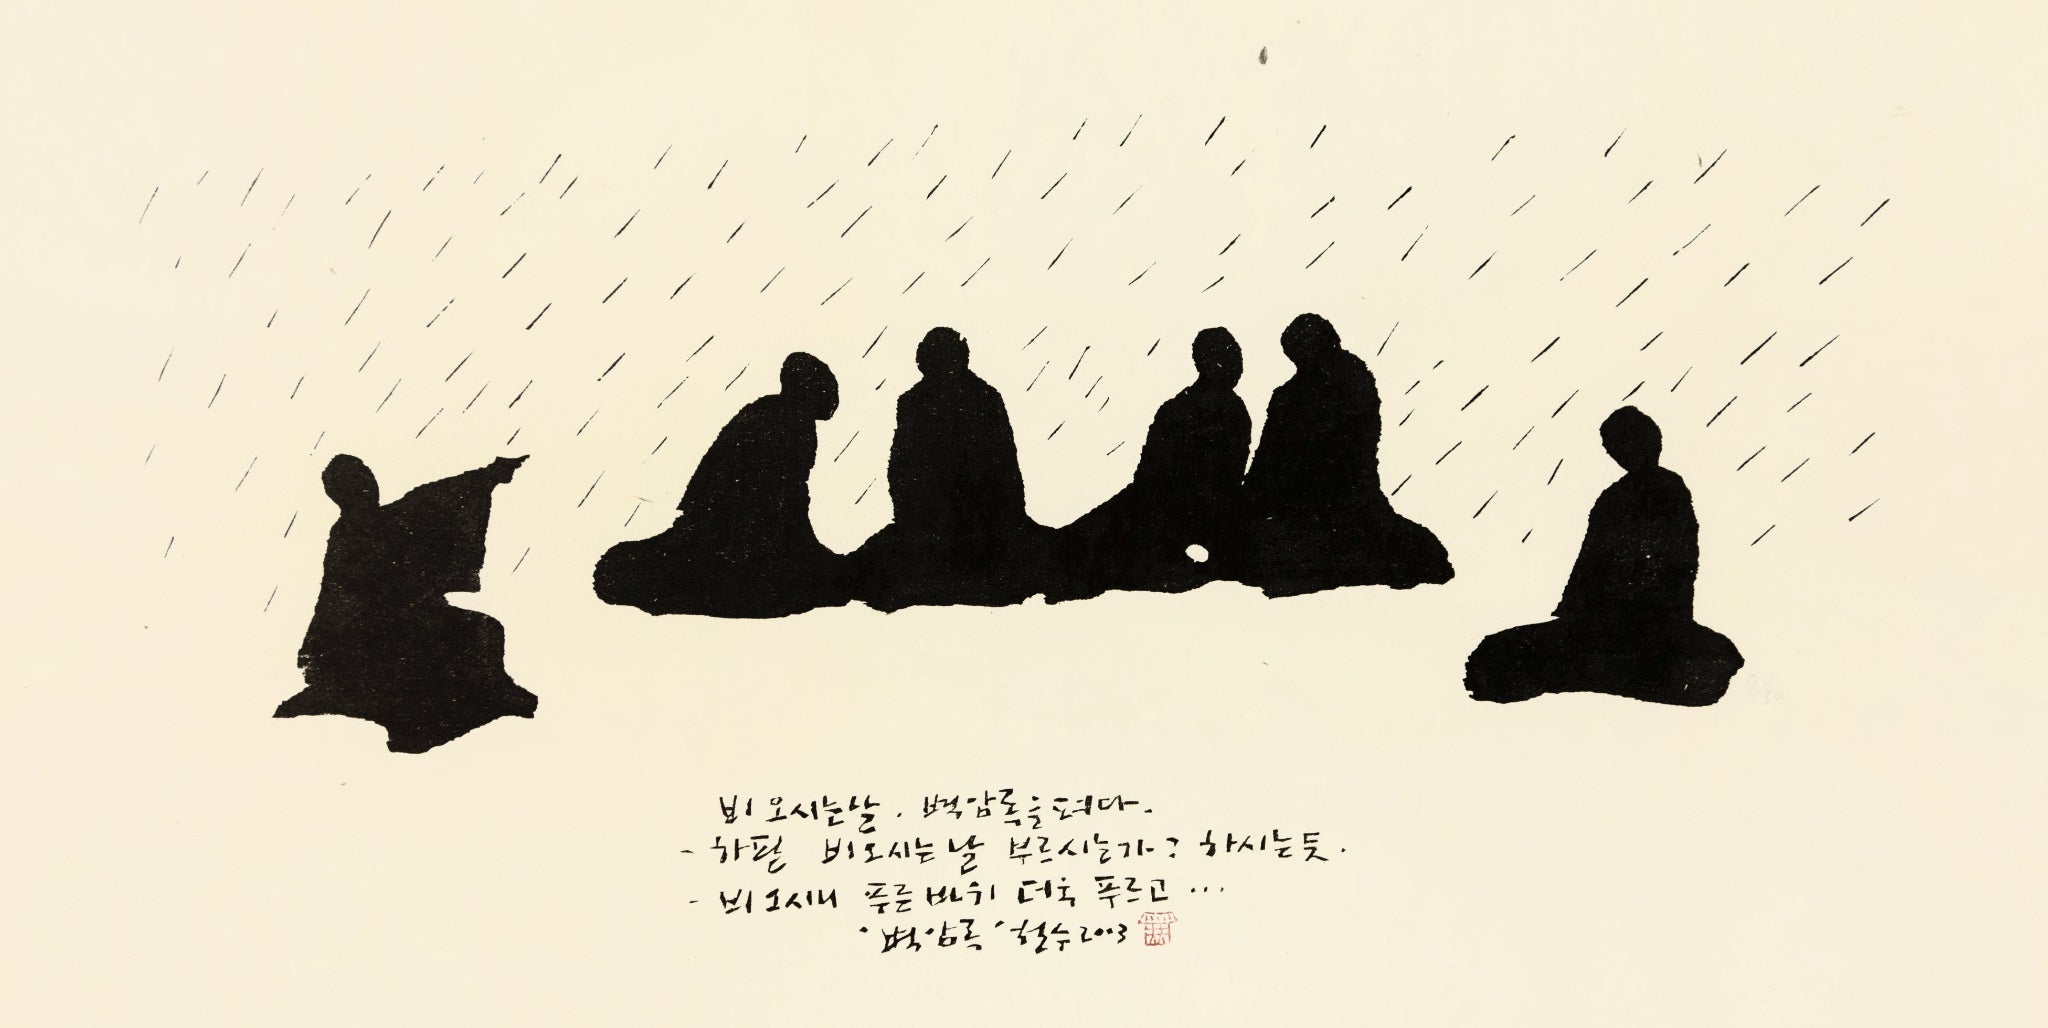 비 오시는날. 벽암록을 펴다.
- 하필 비오시는 날 부르시는가? 하시는 듯.
- 비오시니 푸른 바위 더욱 푸르고 ...
· 벽암록. 철수 2003
7/30